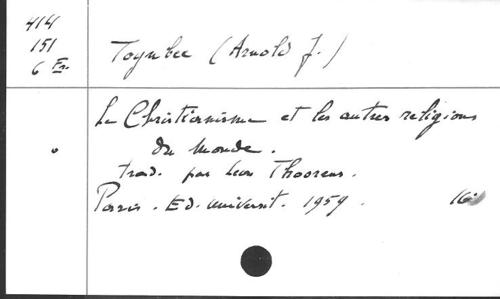 414
151
6 Ex.
Toynbee (Arnold J.)
Le Christianisme et les autres religions
du Monde.
trad. par Léon Thoorens.
Paris. Ed. Universit. 1959. 16°